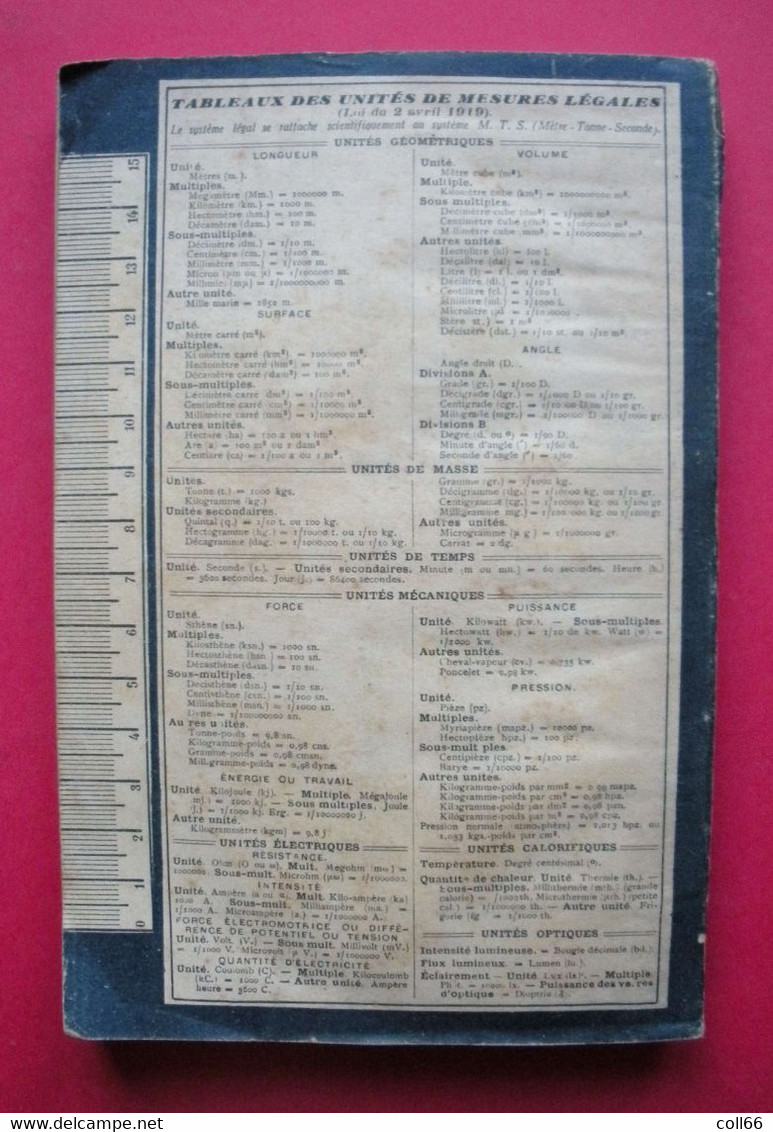 TABLEAUX DES UNITÉS DE MESURES LÉGALES
(Loi du 2 avril 1919).
Le système légal se rattache scientifiquement au système M. T. S. (Mètre-Tonne-Seconde).
UNITÉS GÉOMÉTRIQUES
LONGUEUR
Unité.
Mètres (m.).
Multiples.
Mégamètre (Mm.) = 1000000 m.
Kilomètre (km.) = 1000 m.
Hectomètre (hm.) = 100 m.
Décamètre (dam.) = 10 m.
Sous-multiples.
Décimètre (dm.) = 1/10 m.
Centimètre (cm.) = 1/100 m.
Millimètre (mm.) = 1/1000 m.
Micron (μm ou μ) = 1/1000000 m.
Millimicron (mμ) = 1/1000000000 m.
Autre unité.
Mille marin = 1852 m.
SURFACE
Unité.
Mètre carré (m².).
Multiples.
Kilomètre carré (km²) = 1000000 m².
Hectomètre carré (hm²) = 10000 m².
Décamètre carré (dam²) = 100 m².
Sous-multiples.
Décimètre carré (dm²) = 1/100 m².
Centimètre carré (cm²) = 1/10000 m².
Millimètre carré (mm²) = 1/1000000 m².
Autres unités.
Hectare (ha) = 100 a ou 1 hm².
Are (a) = 100 m² ou 1 dam²
Centiare (ca) = 1/100 a ou 1 m².
VOLUME
Unité.
Mètre cube (m³).
Multiple.
Kilomètre cube (km³) = 1000000000 m³.
Sous multiples.
Décimètre cube (dm³) = 1/1000 m³.
Centimètre cube (cm³) = 1/1000000 m³.
Millimètre cube (mm³) = 1/1000000000 m³.
Autres unités.
Hectolitre (hl) = 100 l.
Décalitre (dal) = 10 l.
Litre (l) = 1 l. ou 1 dm³.
Décilitre (dl.) = 1/10 l.
Centilitre (cl.) = 1/100 l.
Millilitre (ml.) = 1/1000 l.
Microlitre
Stère (st.) = 1 m³
Décistère (dst.) = 1/10 st. ou 1/10 m³.
ANGLE
Angle droit (D.
Divisions A.
Grade (gr.) = 1/100 D.
Décigrade (dgr.) = 1/1000 D ou 1/10 gr.
Centigrade (cgr.) = 1/10 000 D ou 1/100 gr.
Milligrade (mgr.) = 1/100000 D ou 1/1000 gr.
Divisions B
Degré (d. ou °) = 1/90 D.
Minute d'angle (') = 1/60 d.
Seconde d'angle (") = 1/60
UNITÉS DE MASSE
Unités.
Tonne (t.) = 1000 kgs.
Kilogramme (kg.)
Unités secondaires.
Quintal (q.) = 1/10 t. ou 100 kg.
Hectogramme (hg.) = 1/10000 t. ou 1/10 kg.
Décagramme (dag.
Gramme (gr.) = 1/1000 kg.
Décigramme (dg.) = 1/10000 kg. ou 1/10 gr.
Centigramme (cg.) = 1/100000 kg. ou 1/100 gr.
Milligramme mg.)
Autres unités.
Microgramme (μ g) = 1/1000000 gr.
Carrat = 2 dg.
UNITÉS DE TEMPS
Unité. Seconde (s.). - Unités secondaires. Minute (m ou mn.) = 60 secondes. Heure (h.)
= 3600 secondes. Jour (j.) = 86400 secondes.
UNITÉS MÉCANIQUES
FORCE
Unité.
Sthène (sn.).
Multiples.
Kilosthène (ksn.) = 1000 sn.
Hectosthène (hsn ) = 100 sn.
Décasthène (dasn.) = 10 sn.
Sous-multiples.
Decisthène (dsn.) = 1/10 sn.
Centisthène (csn.) = 1/100 sn.
Millisthène (msn.) = 1/1000 sn.
Dyne = 1/100000000 sn.
Autres unités.
Tonne-poids = 9,8 sn.
Kilogramme-poids = 0,98 cns.
Gramme-poids = 0,98 cmsn.
Milligramme-poids = 0,98 dyne.
ÉNERGIE OU TRAVAIL
Unité. Kilojoule (kj). - Multiple. Mégajoule
mj.) = 1000 kj. - Sous multiples. Joule
j.) = 1/1000 kj. Erg. = 1/10000000 j.
Autre unité.
Kilogrammètre (kgm) = 9,8 j
PUISSANCE
Unité. Kilowatt (kw.). - Sous-multiples
Hectowatt (hw.) = 1/10 de kw. Watt (w) =
1/1000 kw.
Autres unités.
Cheval-vapeur (cv.) = 0,735 kw.
Poncelet = 0,98 kw.
PRESSION.
Unité.
Pièze (pz).
Multiples.
Myriapièze (mapz.) = 10000 pz.
Hectopièze hpz.) = 100 pz.
Sous-multiples.
Centipièze (cpz.) = 1/100 pz.
Barye = 1/10000 pz.
Autres unités.
Kilogramme-poids par mm² = 0,98 mapz.
Kilogramme-poids par cm² = 0,98 hpz.
Kilogramme-poids par dm² = 0,98 pzn.
Kilogramme-poids par m²
Pression normale (atmosphère) = 1,013 hpz. ou
1,033 kgs.-poids par cm².
UNITÉS ÉLECTRIQUES
RÉSISTANCE.
Unité. Ohm (O ou ω). Mult. Megohm (mω) =
1000000. Sous-mult. Microhm (μω) = 1/1000000.
INTENSITÉ
Unité. Ampère (a ou A). Mult. Kilo-ampère (ka)
1000 A. Sous-mult. Milliampère (ma.) =
1/1000 A. Microampère (a.) = 1/1000000 A.
FORCE ÉLECTROMOTRICE OU DIFFÉ-
RENCE DE POTENTIEL OU TENSION
Unité. Volt. (V.) - Sous mult. Millivolt (mV.)
= 1/1000 V. Microvolt (μ V.) = 1/1000000 V.
QUANTITÉ D'ÉLECTRICITÉ
Unité. Coulomb (C). - Multiple. Kilocoulomb
(kC.) = 1000 C. - Autre unité. Ampère
heure = 3600 C.
UNITÉS CALORIFIQUES
Température. Degré centésimal (°).
Quantité de chaleur. Unité Thermie (th.). -
Sous-multiples. Millithermie (mth.) (grande
calorie) = 1/1000 th. Microthermie (μth.) (petite
cal.) = 1/1000000 th. - Autre unité. Fri-
gorie (fg = 1/1000 th.
UNITÉS OPTIQUES
Intensité lumineuse. = Bougie décimale (bd.).
Flux lumineux. = Lumen (lu.).
Éclairement - Unité Lux (lx). - Multiple
Phot. = 10000 lx. - Puissance des verres
d'optique = Dioptrie (d.
15
14
13
12
11
10
9
8
7
6
5
4
3
2
1
0
delcampe.net
coll66